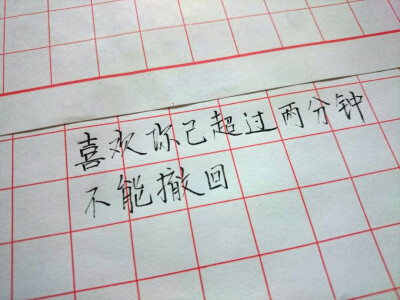 喜欢你已超过两分钟
不能撤回